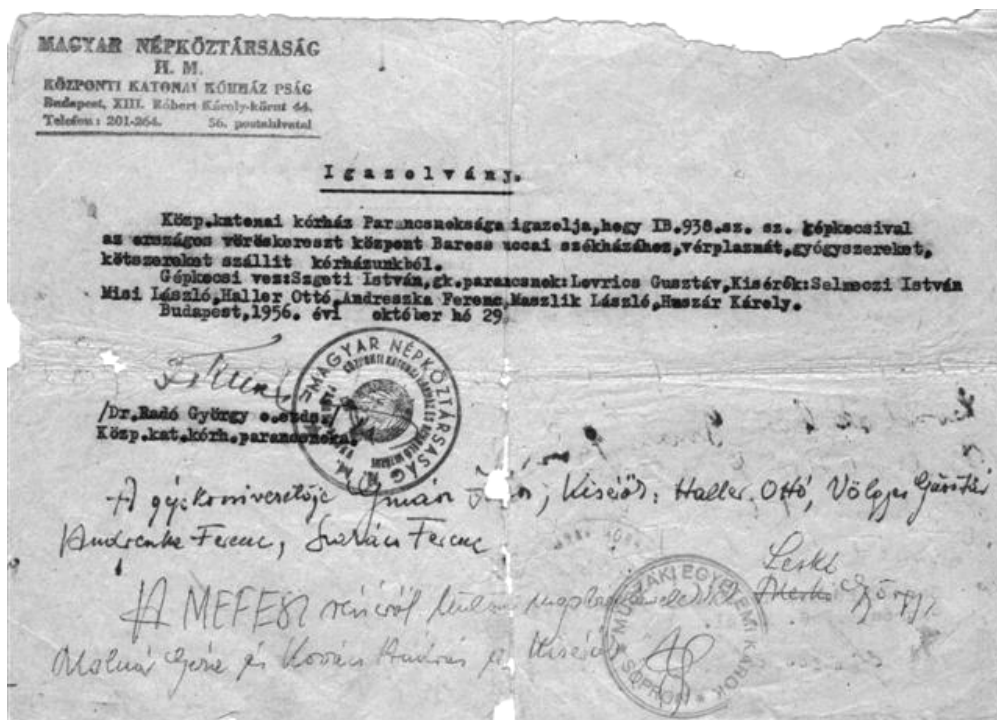 MAGYAR NÉPKÖZTÁRSASÁG
H. M.
KÖZPONTI KATONAI KÓRHÁZ PSÁG
Budapest, XIII. Róbert Károly-körut 44.
Telefon: 201-264. 56. postahivatal
Igazolvány.
Közp.katonai kórház Parancsnoksága igazolja,hogy IB.938.sz. sz. gépkocsival
az országos vöröskereszt központ Baress uccai székházához,vérplazmát,gyógyszereket,
kötszereket szállit kórházunkból.
Gépkocsi vez:Szgeti István,gk.parancsnok:Lovrics Gusztáv,Kisérők:Selmeczi István
Misi László,Haller Ottó,Andreszka Ferenc,Maszlik László,Huszár Károly.
Budapest,1956. évi október hó 29
MAGYAR NÉPKÖZTÁRSASÁG
/Dr.Radó György o.ezds.
Közp.kat.kórh.parancsnoka.
A Kisérők: Haller Ottó, Völgyes
Ferenc, Ferenc
A MEFESZ részéről Leskó György,
Molnár Géza és Kovács András Kisérők
MŰSZAKI EGYETEMI KAROK SOPRON